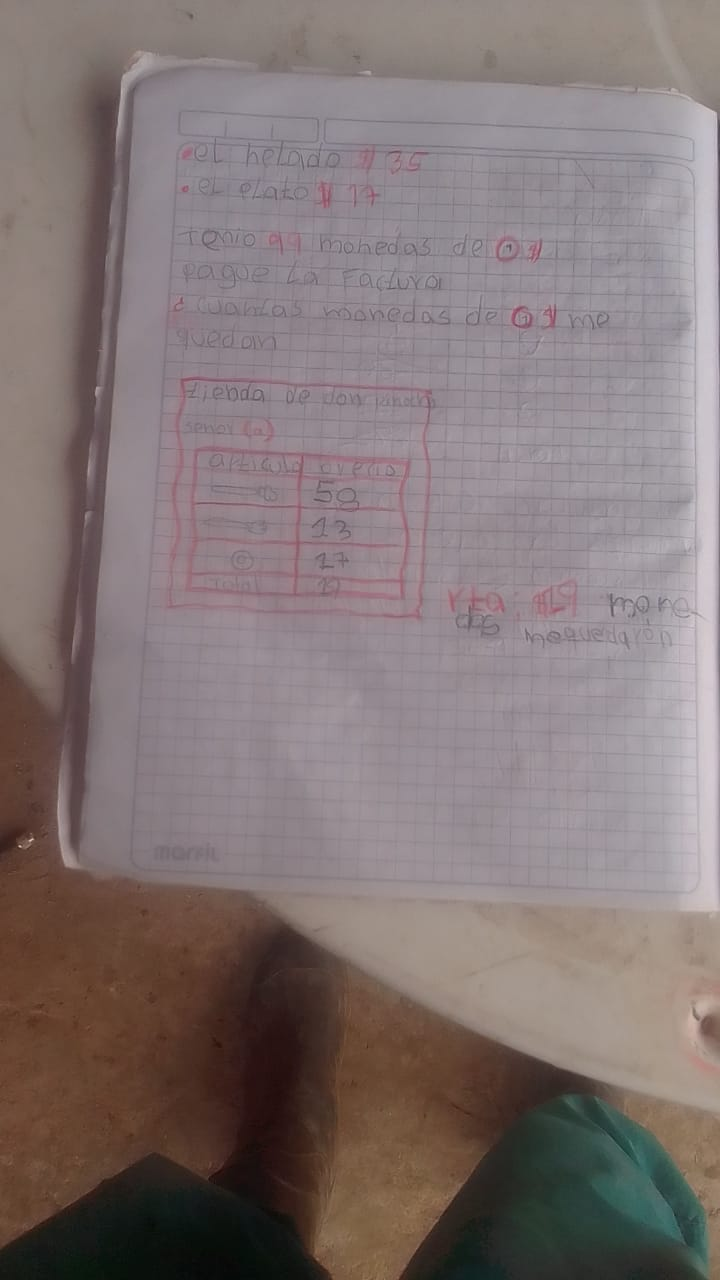 el helado $ 35
el plato $ 17
Tenio 99 monedas de 1 $
pague La Factura
¿ cuantas monedas de 1 $ me
quedan
tienda de don
señor (a)
articulo precio
50
13
17
Total 19
rta: $19 mone
das mequedarón
marfil